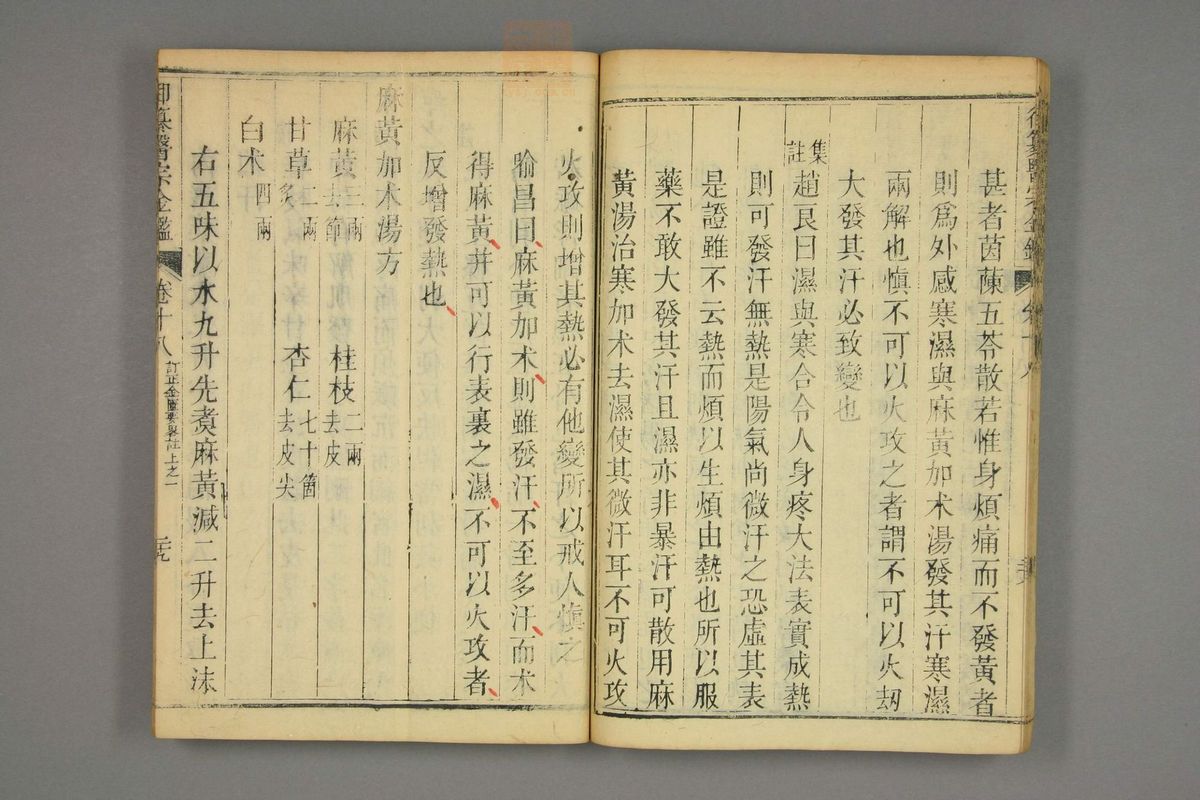 甚者茵蔯五苓散若惟身煩痛而不發黃者
則為外感寒濕與麻黃加朮湯發其汗寒濕
兩解也慎不可以火攻之者謂不可以火刼
大發其汗必致變也
集註
趙良曰濕與寒合令人身疼大法表實成熱
則可發汗無熱是陽氣尚微汗之恐虛其表
是證雖不云熱而煩以生煩由熱也所以服
藥不敢大發其汗且濕亦非暴汗可散用麻
黃湯治寒加朮去濕使其微汗耳不可火攻
火攻則增其熱必有他變所以戒人慎之
喻昌曰麻黃加朮則雖發汗不至多汗而朮
得麻黃并可以行表裏之濕不可以火攻者
反增發熱也
麻黃加朮湯方
麻黃三兩去節 桂枝二兩去皮
甘草二兩炙 杏仁七十箇去皮尖
白朮四兩
右五味以水九升先煮麻黃減二升去上沫
御纂醫宗金鑑 卷十八 訂正金匱要畧註上之一